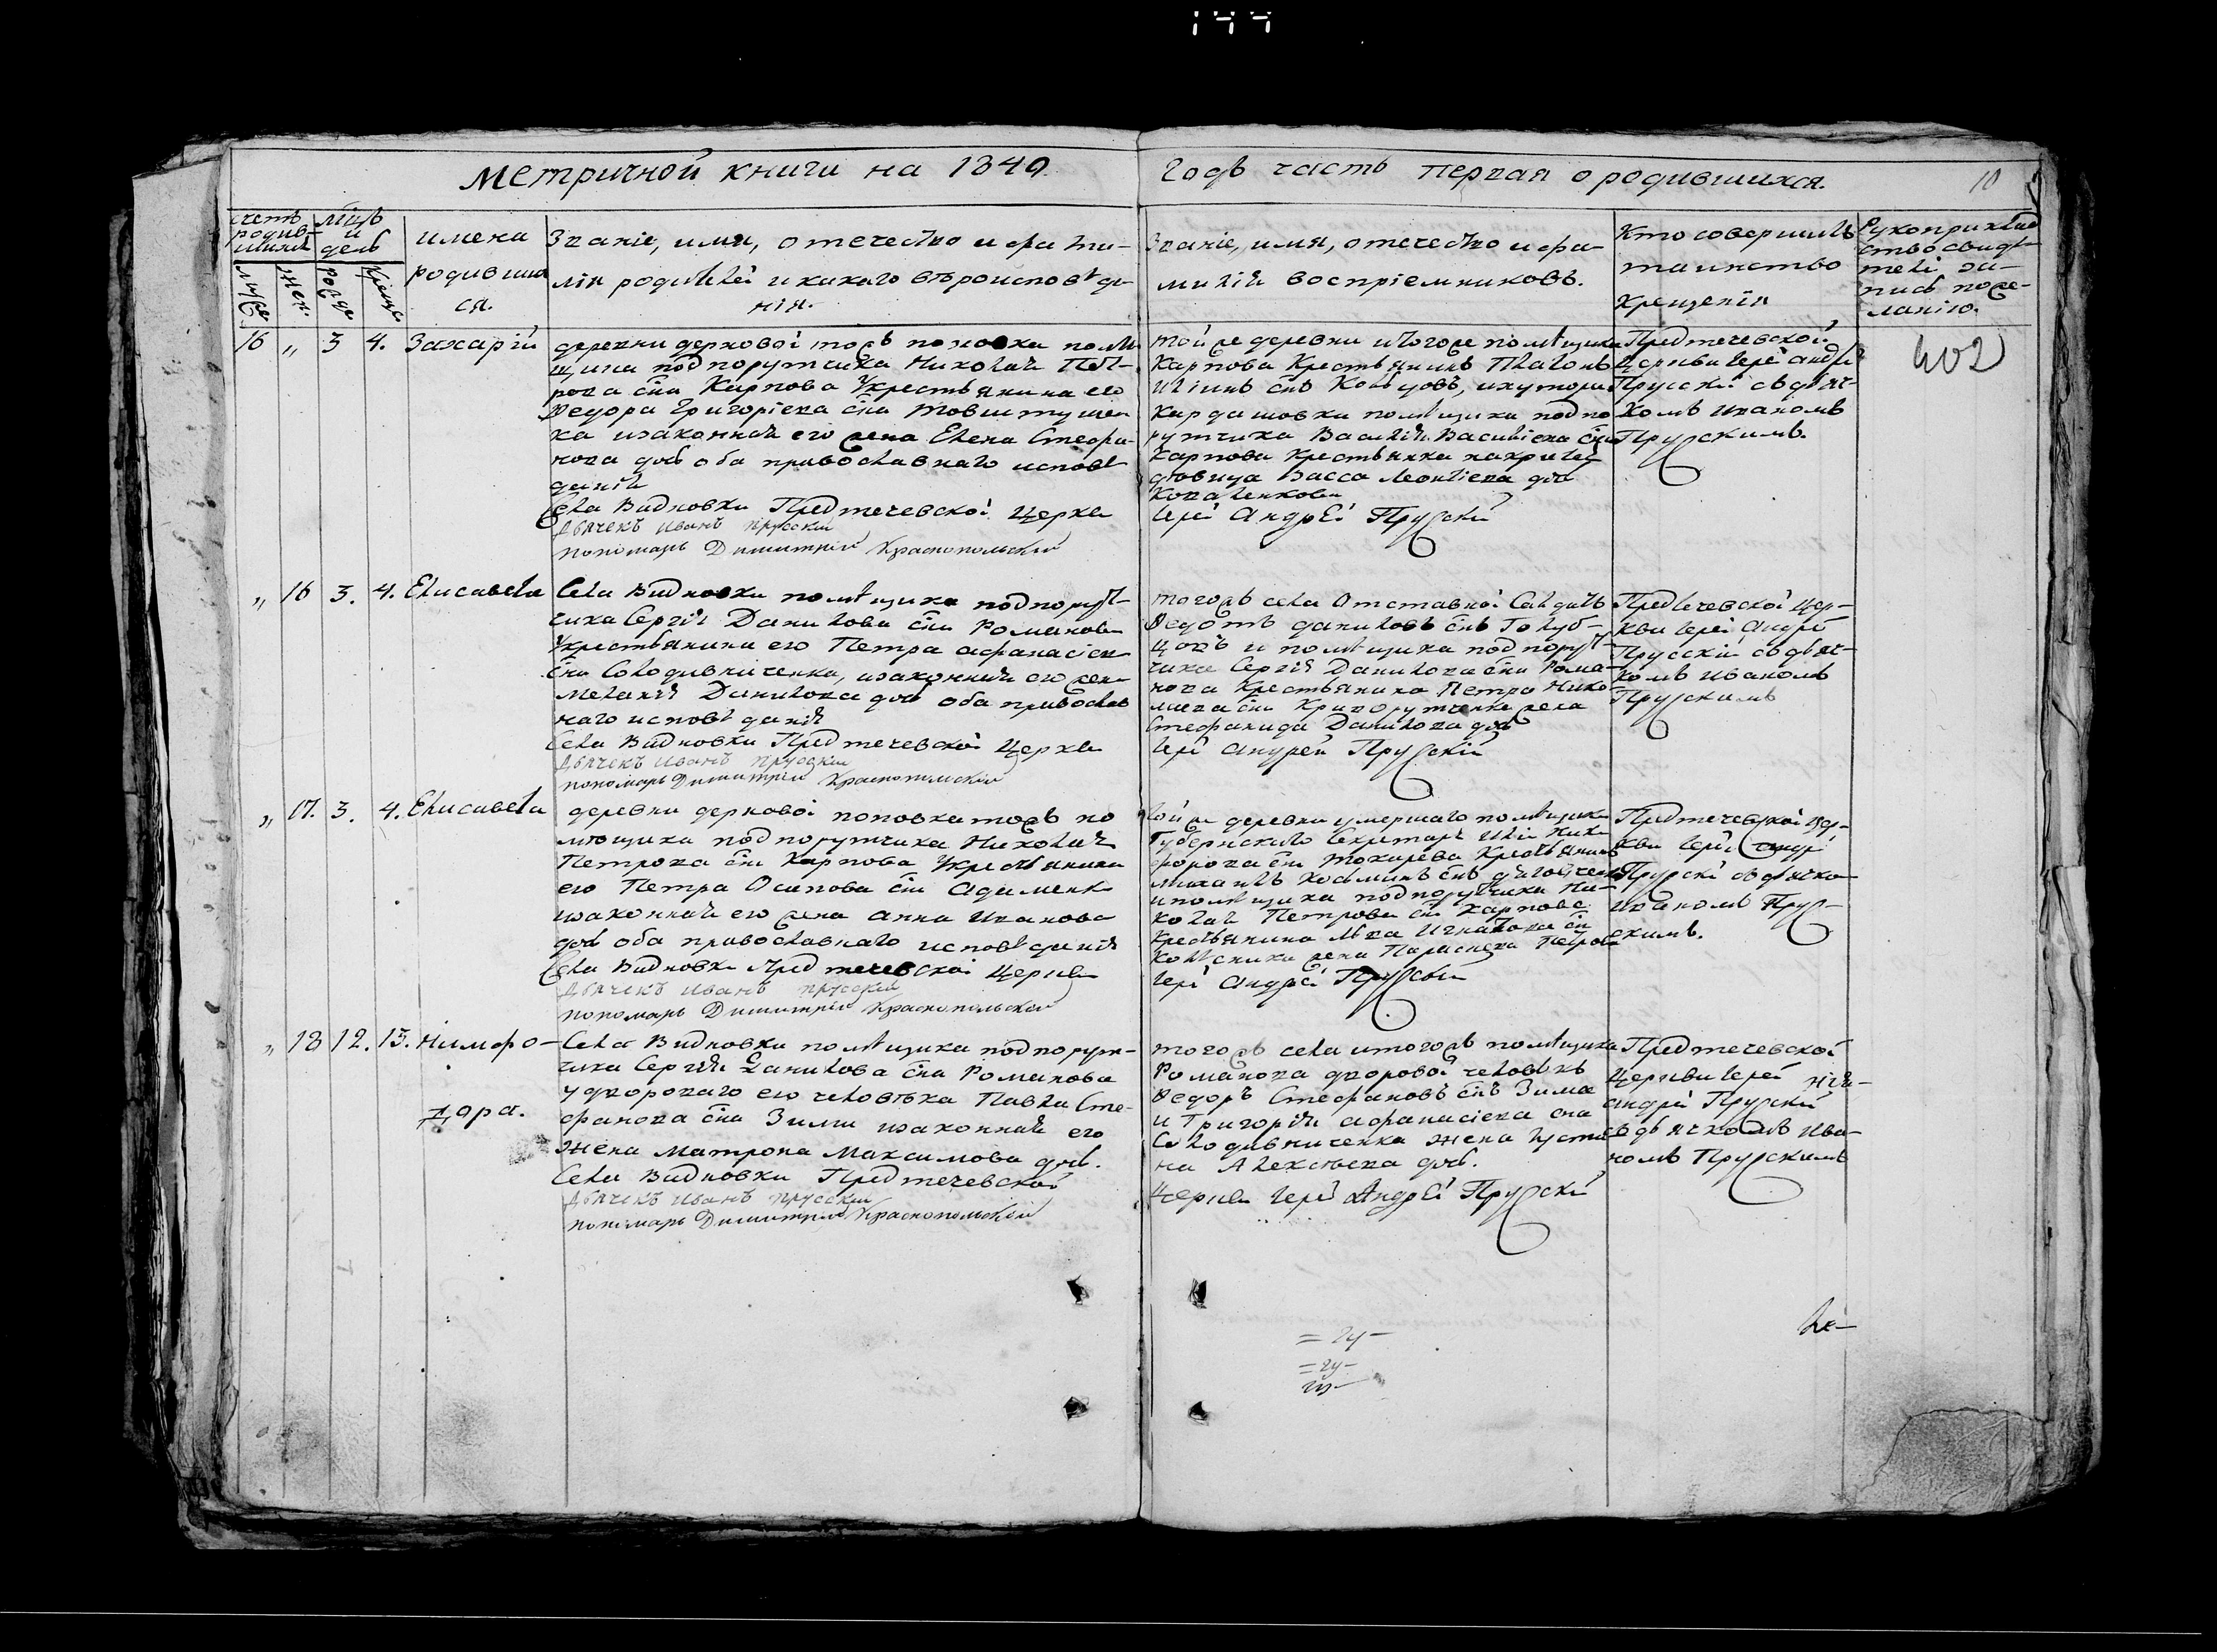 Метричной книги на 1840
годъ часть первая о родившихся.
10
счетъ родив-шихся
мѣсяцъ и день
имена родивши ся.
Званіе, имя, отечество и фами-
лія родителей и какаго вѣроисповѣда-
нія.
Званіе, имя, отечество и фа-
милія воспріемниковъ.
Кто совершилъ
таинство
крещенія
Рукоприклад
ство свидѣ-
телей за-
писи по же-
ланію.
16 „ 3 4. Захарій
деревни дерновой тожъ поповки помѣ
щика подпорутчика Николая Пет-
рова сна Карпова Укрестьянина его
Федора Григоріева сна
ка изаконная его жена Елена Стефа-
нова доч оба православнаго исповѣ
данія
Села Видновки Предтечевской Церкви
Дьячекъ Иванъ Прускій
пономарь Димитрій Краснопольскій
той же деревни итогоже помѣщика
Карпова Крестьянинъ Платонъ
снъ ихутора
Кардашовки помѣщика подпо
рутчика Василія Василіева сна
Карпова Крестьянка
довица Васса Леонтіева доч
Коваленкова
Іерей Андрей Прускій
Предтечевской
Церкви Іерей Андрей
Прускій съ дьяч-
комъ Иваномъ
Прускимъ.
402
„ 16 3. 4. Елисавета
Села Видновки помѣщика подпорут-
чика Сергія Данилова сна Романова
Укрестьянина его Петра Афанасіева
сна Солодивниченка, изаконная его жена
Меланія Данилова доч оба православ
наго исповѣданія
Села Видновки Предтечевской Церкви
Дьячекъ Иванъ Прускій
пономарь Димитрій Краснопольскій
тогожъ села Отставной Солдатъ
Федотъ Даниловъ снъ Голуб-
цовъ и помѣщика подпорут-
чика Сергія Данилова сна Рома-
нова Крестьянина Петра Нико-
лаева сна жена
Стефанида Данилова доч
Іерей Андрей Прускій
Предтечевской Цер-
кви Іерей Андрей
Прускій съ дьяч-
комъ Иваномъ
Прускимъ
„ 17. 3. 4. Елисавета
деревни дерновой поповка тожъ по
мѣщика подпорутчика Николая
Петрова сна Карпова Укрестьянина
его Петра Осипова сна Адаменка
изаконная его жена Анна Иванова
доч оба православнаго исповѣданія
Села Видновки Предтечевской Церкви
Дьячекъ Иванъ Прускій
пономарь Димитрій Краснопольскій
той же деревни умершаго помѣщика
Губернскаго Секретаря Иліи Ники
форова сна Токарева Крестьянинъ
Михаилъ Косминъ снъ
ипомѣщика подпорутчика Ни-
колая Петрова сна Карпова
Крестьянина Льва Игнатова сна
жена Параскева Петрова
Іерей Андрей Прускій
Предтечевской Цер-
кви Іерей Андрей
Прускій съ дьячко
Иваномъ Прус-
скимъ.
„ 18 12. 13. Нимфо-
дора.
Села Видновки помѣщика подпорут-
чика Сергія Данилова сна Романова
удвороваго его человѣка Павла Сте-
фанова сна Зимы изаконная его
жена Матрона Максимова доч.
Села Видновки Предтечевской
Дьячекъ Иванъ Прускій
пономарь Димитрій Краснопольскій
тогожъ села итогожъ помѣщика
Романова дворовой человѣкъ
Федоръ Стефановъ снъ Зима
и Григорія Афанасіева сна
Солодивниченка жена Усти
на Алексѣева доч.
Церкви Іерей Андрей Прускій
Предтечевской
Церкви Іерей
Андрей Прускій
съ дьячкомъ Ива-
номъ Прускимъ